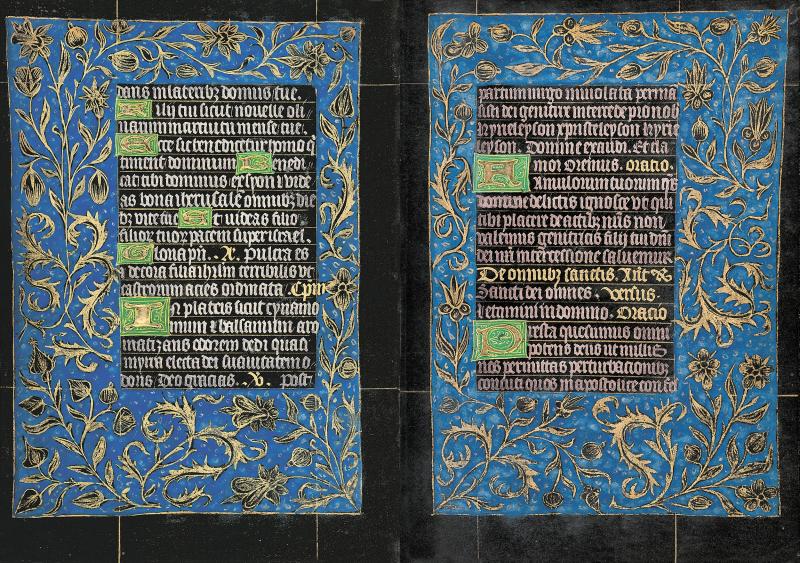 dans in lateribz domus tue.
Filij tui sicut nouelle oli
uarum in circuitu mense tue.
Ecce sic benedicetur homo q
timent dominum Benedi
cat tibi dominus ex syon et vide
as bona iherusalē omnibz die
bz vite tue Et videas filio
filior tuor pacem super israel.
Gloria pri. .X. Pulcra es
et decora filia ihrlm terribilis vt
castrorum acies ordinata. Cpim
In plateis sicut cynamo
mum et balsamum aro
matizans odorem dedi quasi
myrra electa dedi suauitatem o
doris. Deo gracias. .V. Post
partum virgo inuiolata perma
sisti dei genitrix intercede pro nob
kyrieleyson xpristeleyson kyrie
leyson. Domine exaudi. Et cla
mor Oremus. oratio.
Famulorum tuorum qs
domine delictis ignosce vt qui
tibi placere de actibz nr̄is non
valemus genitricis filij tui dm̄i
dei nr̄i intercessione saluemur
De omnibz sanctis. Ant
Sancti dei omnes. versus.
letamini in domino. Oracio
Presta quesumus omni
potens deus vt nullis
nos permittas perturbacionibz
concuti quos in apostolice confes